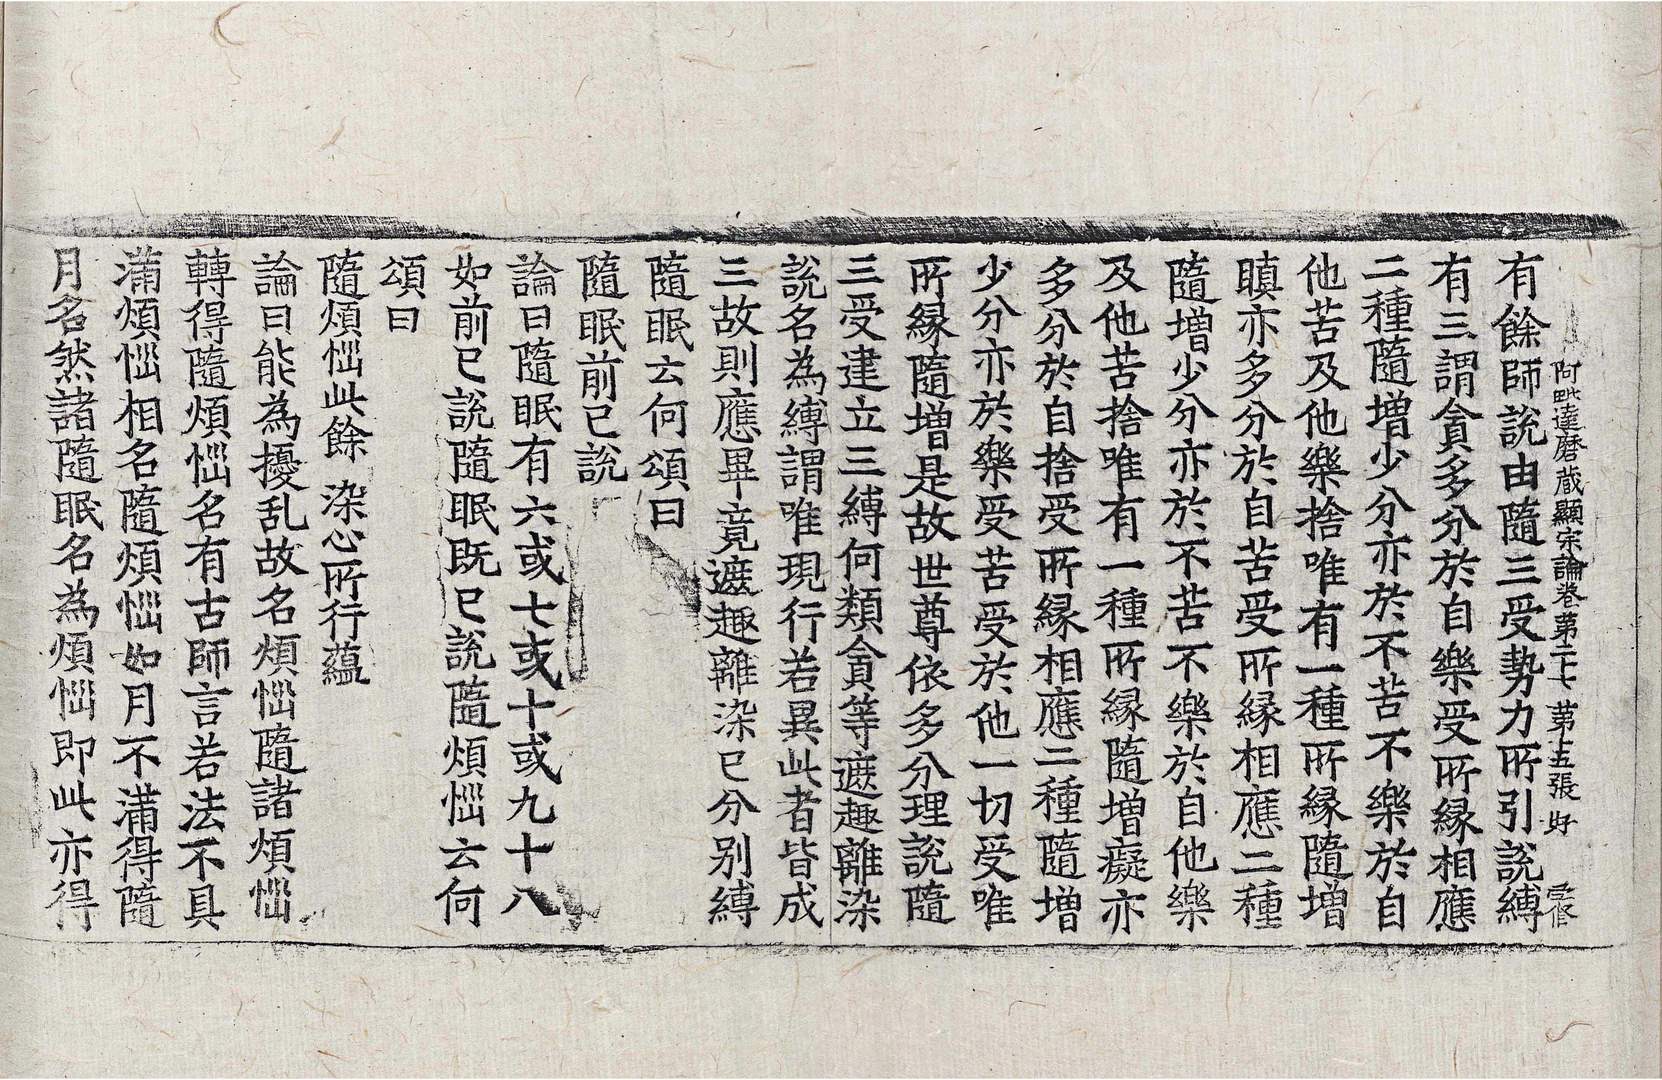 阿毗達磨蔵顯宗論卷第二十七 第十五張 好
有餘師說由隨三受勢力所引說縛
有三謂貪多分於自樂受所緣相應
二種隨增少分亦於不苦不樂於自
他苦及他樂捨唯有一種所緣隨增
瞋亦多分於自苦受所緣相應二種
隨增少分亦於不苦不樂於自他樂
及他苦捨唯有一種所緣隨增癡亦
多分於自捨受所緣相應二種隨增
少分亦於樂受苦受於他一切受唯
所緣隨增是故世尊依多分理說隨
三受建立三縛何類貪等遮趣離染
說名為縛謂唯現行若異此者皆成
三故則應畢竟遮趣離染已分別縛
隨眠云何頌曰
隨眠前已說
論曰隨眠有六或七或十或九十八
如前已說隨眠既已說隨煩惱云何
頌曰
隨煩惱此餘 染心所行蘊
論曰能為擾乱故名煩惱隨諸煩惱
轉得隨煩惱名有古師言若法不具
滿煩惱相名隨煩惱如月不滿得隨
月名然諸隨眠名為煩惱即此亦得